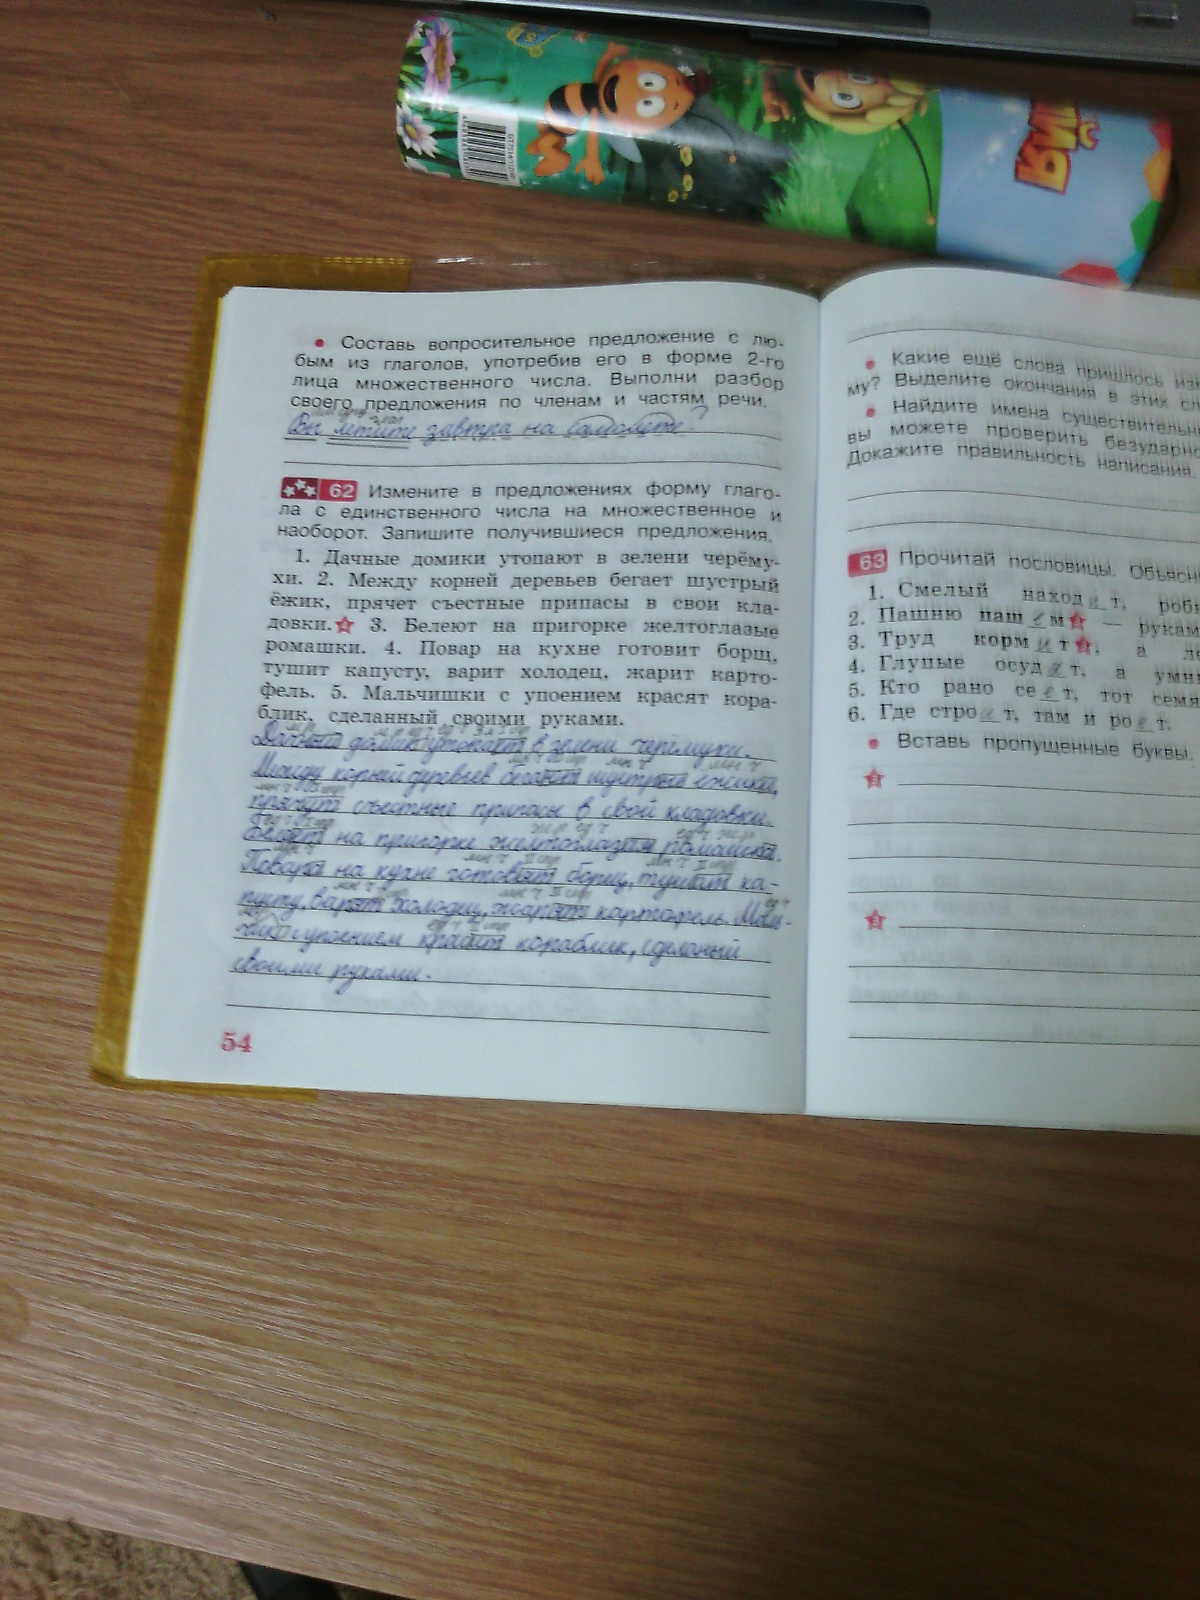 • Составь вопросительное предложение с лю-
бым из глаголов, употребив его в форме 2-го
лица множественного числа. Выполни разбор
своего предложения по членам и частям речи.
Вы летите завтра на самолёте?
62 Измените в предложениях форму глаго-
ла с единственного числа на множественное и
наоборот. Запишите получившиеся предложения.
1. Дачные домики утопают в зелени черёму-
хи. 2. Между корней деревьев бегает шустрый
ёжик, прячет съестные припасы в свои кла-
довки. 3. Белеют на пригорке желтоглазые
ромашки. 4. Повар на кухне готовит борщ,
тушит капусту, варит холодец, жарит карто-
фель. 5. Мальчишки с упоением красят кора-
блик, сделанный своими руками.
домик утопает в зелени черёмухи.
Между корней деревьев бегают шустрые ёжики,
прячут съестные припасы в свои кладовки.
Белеет на пригорке желтоглазая ромашка.
Повара на кухне готовят борщ, тушат ка-
пусту, варят холодец, жарят картофель. Маль-
чик с упоением красит кораблик, сделаный
своими руками.
54
• Какие ещё слова пришлось
му? Выделите окончания в этих
• Найдите имена
вы можете проверить
Докажите правильность написания.
63 Прочитай пословицы.
1. Смелый наход и т,
2. Пашню паш е м —
3. Труд корм и т, а
4. Глупые осуд я т, а
5. Кто рано се е т, тот
6. Где стро т, там и ро е т.
• Вставь пропущенные буквы.
3
3